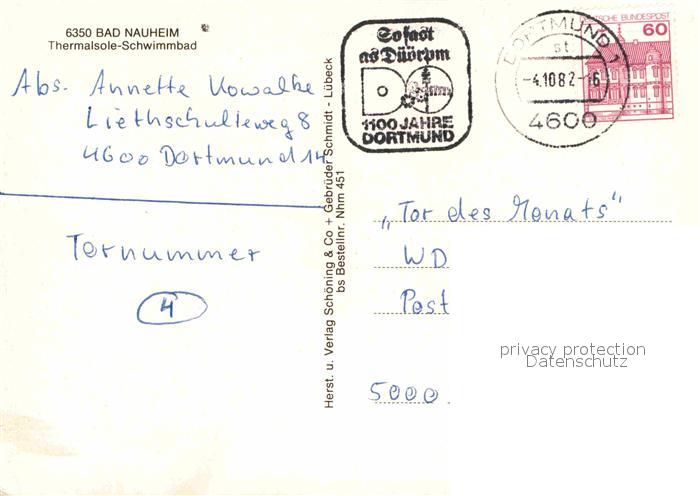 6350 BAD NAUHEIM
Thermalsole-Schwimmbad
Abs. Annette Kowalke
Liethschulteweg 8
4600 Dortmund 14
Tornummer
4
Herst. u. Verlag Schöning & Co + Gebrüder Schmidt - Lübeck
bs Bestellnr. Nhm 451
So fast
as Düörpm
1100 JAHRE
DORTMUND
DORTMUND 1
st
-4.10.82-16
4600
DEUTSCHE BUNDESPOST
60
„Tor des Monats"
WD
Post
privacy protection
Datenschutz
5000